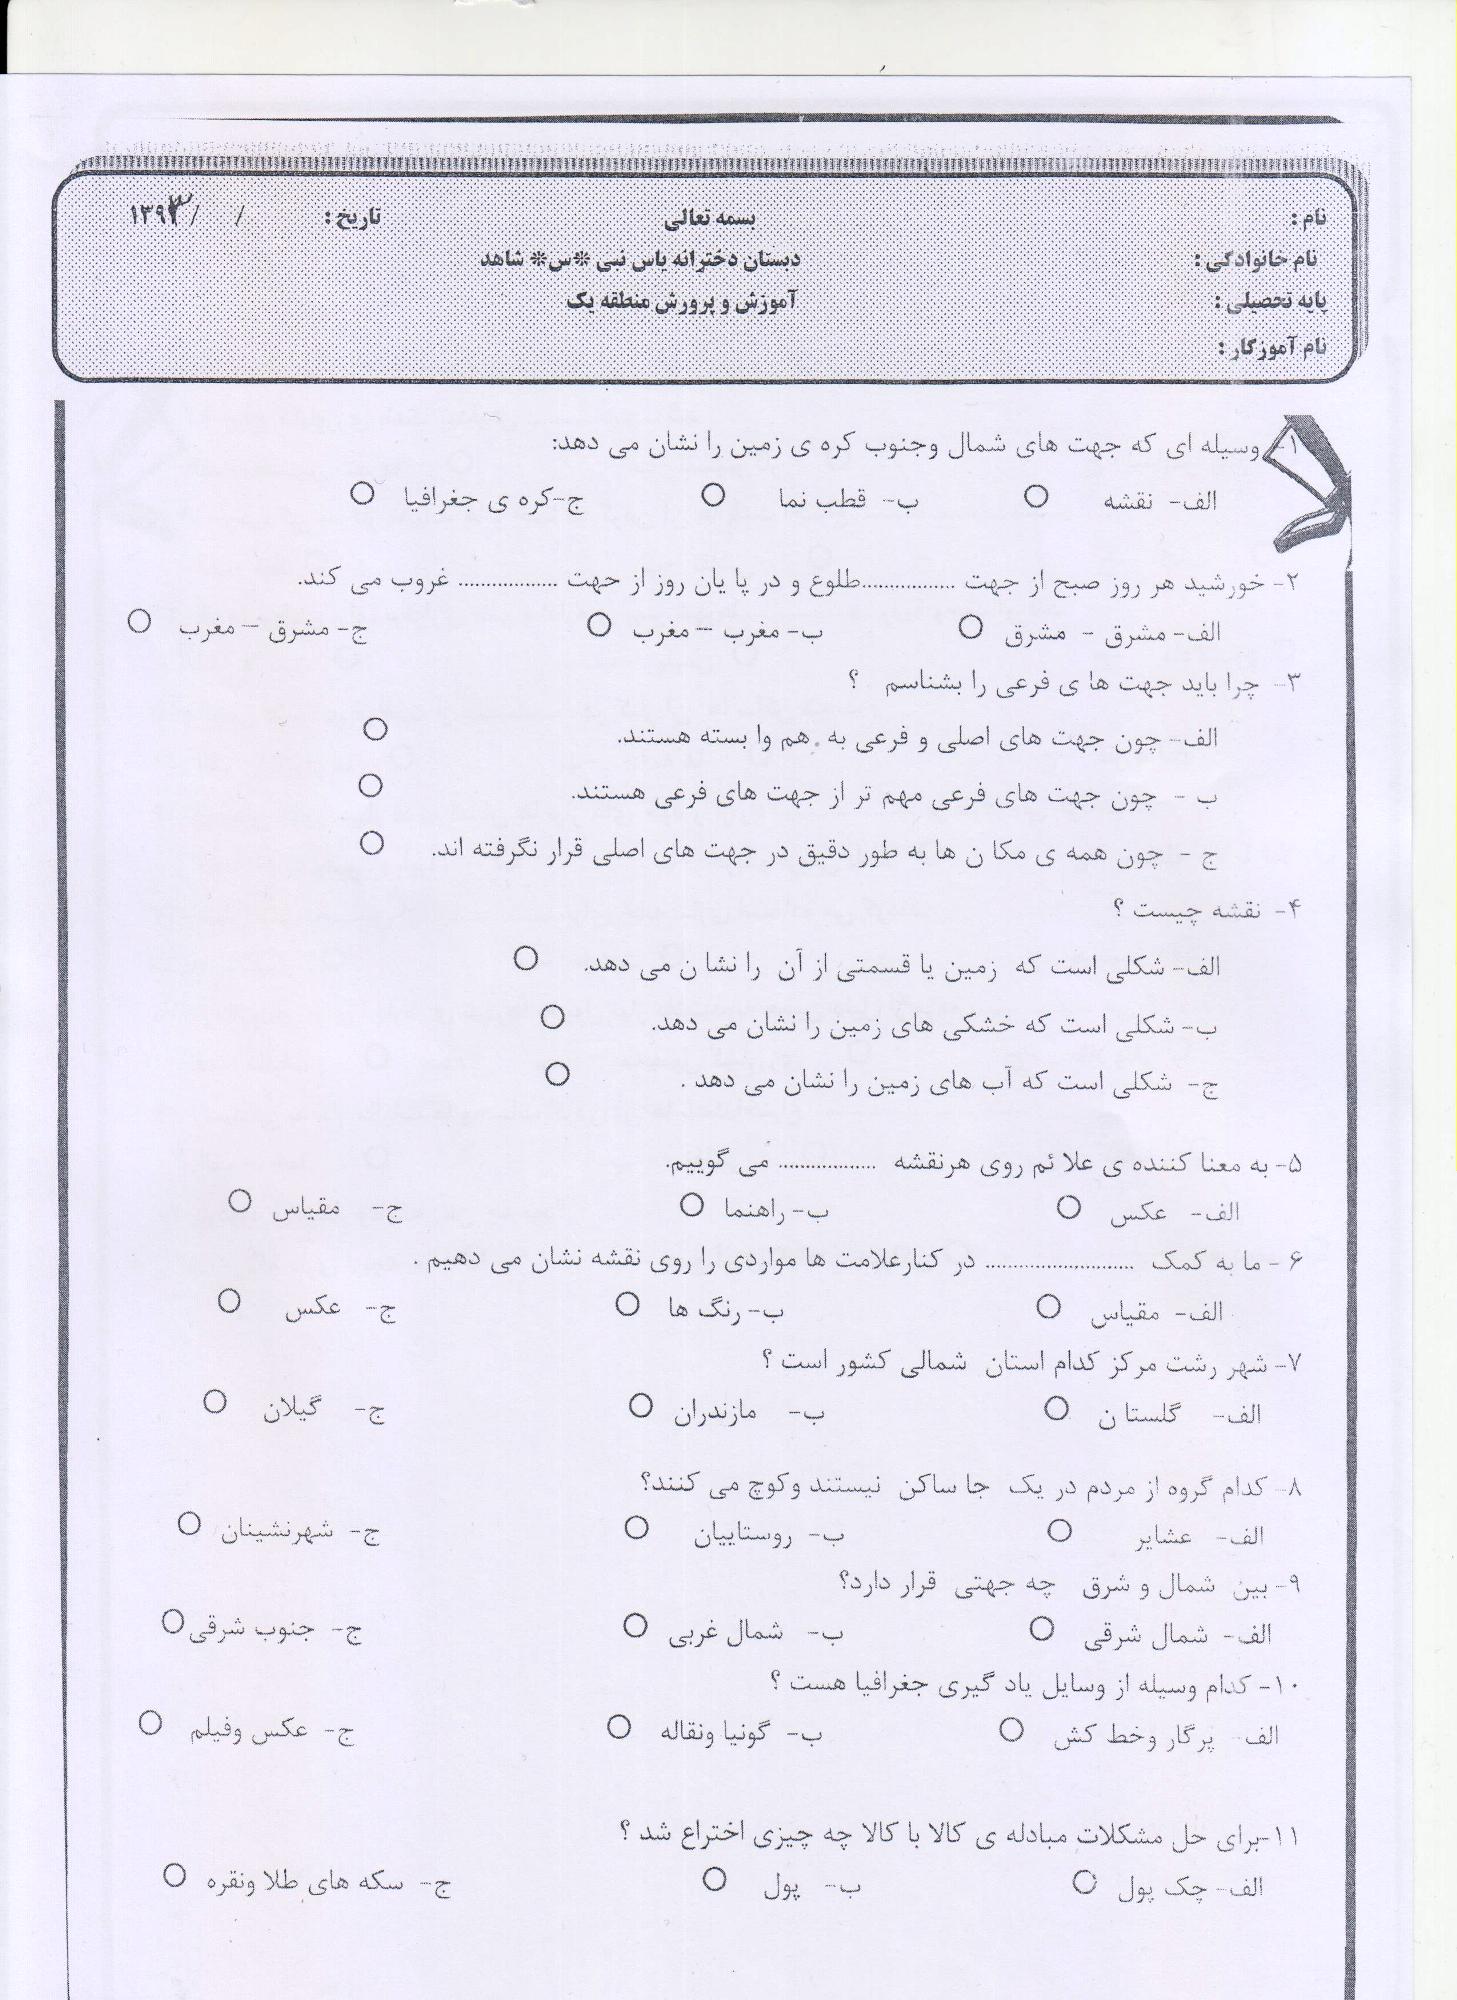 نام :
بسمه تعالی
تاریخ : / /۱۳۹۳
نام خانوادگی :
دبستان دخترانه یاس نبی *س* شاهد
پایه تحصیلی :
آموزش و پرورش منطقه یک
نام آموزگار :
۱- وسیله ای که جهت های شمال وجنوب کره ی زمین را نشان می دهد:
الف- نقشه ب- قطب نما ج-کره ی جغرافیا
۲- خورشید هر روز صبح از جهت ................طلوع و در پا یان روز از حهت ................. غروب می کند.
الف- مشرق - مشرق ب- مغرب – مغرب ج- مشرق – مغرب
۳- چرا باید جهت ها ی فرعی را بشناسم ؟
الف- چون جهت های اصلی و فرعی به هم وا بسته هستند.
ب - چون جهت های فرعی مهم تر از جهت های فرعی هستند.
ج - چون همه ی مکا ن ها به طور دقیق در جهت های اصلی قرار نگرفته اند.
۴- نقشه چیست ؟
الف- شکلی است که زمین یا قسمتی از آن را نشا ن می دهد.
ب- شکلی است که خشکی های زمین را نشان می دهد.
ج- شکلی است که آب های زمین را نشان می دهد .
۵- به معنا کننده ی علا ئم روی هرنقشه ................. می گوییم.
الف- عکس ب- راهنما ج- مقیاس
۶ - ما به کمک .......................... در کنارعلامت ها مواردی را روی نقشه نشان می دهیم .
الف- مقیاس ب- رنگ ها ج- عکس
۷- شهر رشت مرکز کدام استان شمالی کشور است ؟
الف- گلستا ن ب- مازندران ج- گیلان
۸- کدام گروه از مردم در یک جا ساکن نیستند وکوچ می کنند؟
الف- عشایر ب- روستاییان ج- شهرنشینان
۹- بین شمال و شرق چه جهتی قرار دارد؟
الف- شمال شرقی ب- شمال غربی ج- جنوب شرقی
۱۰- کدام وسیله از وسایل یاد گیری جغرافیا هست ؟
الف- پرگار وخط کش ب- گونیا ونقاله ج- عکس وفیلم
۱۱-برای حل مشکلات مبادله ی کالا با کالا چه چیزی اختراع شد ؟
الف- چک پول ب- پول ج- سکه های طلا ونقره